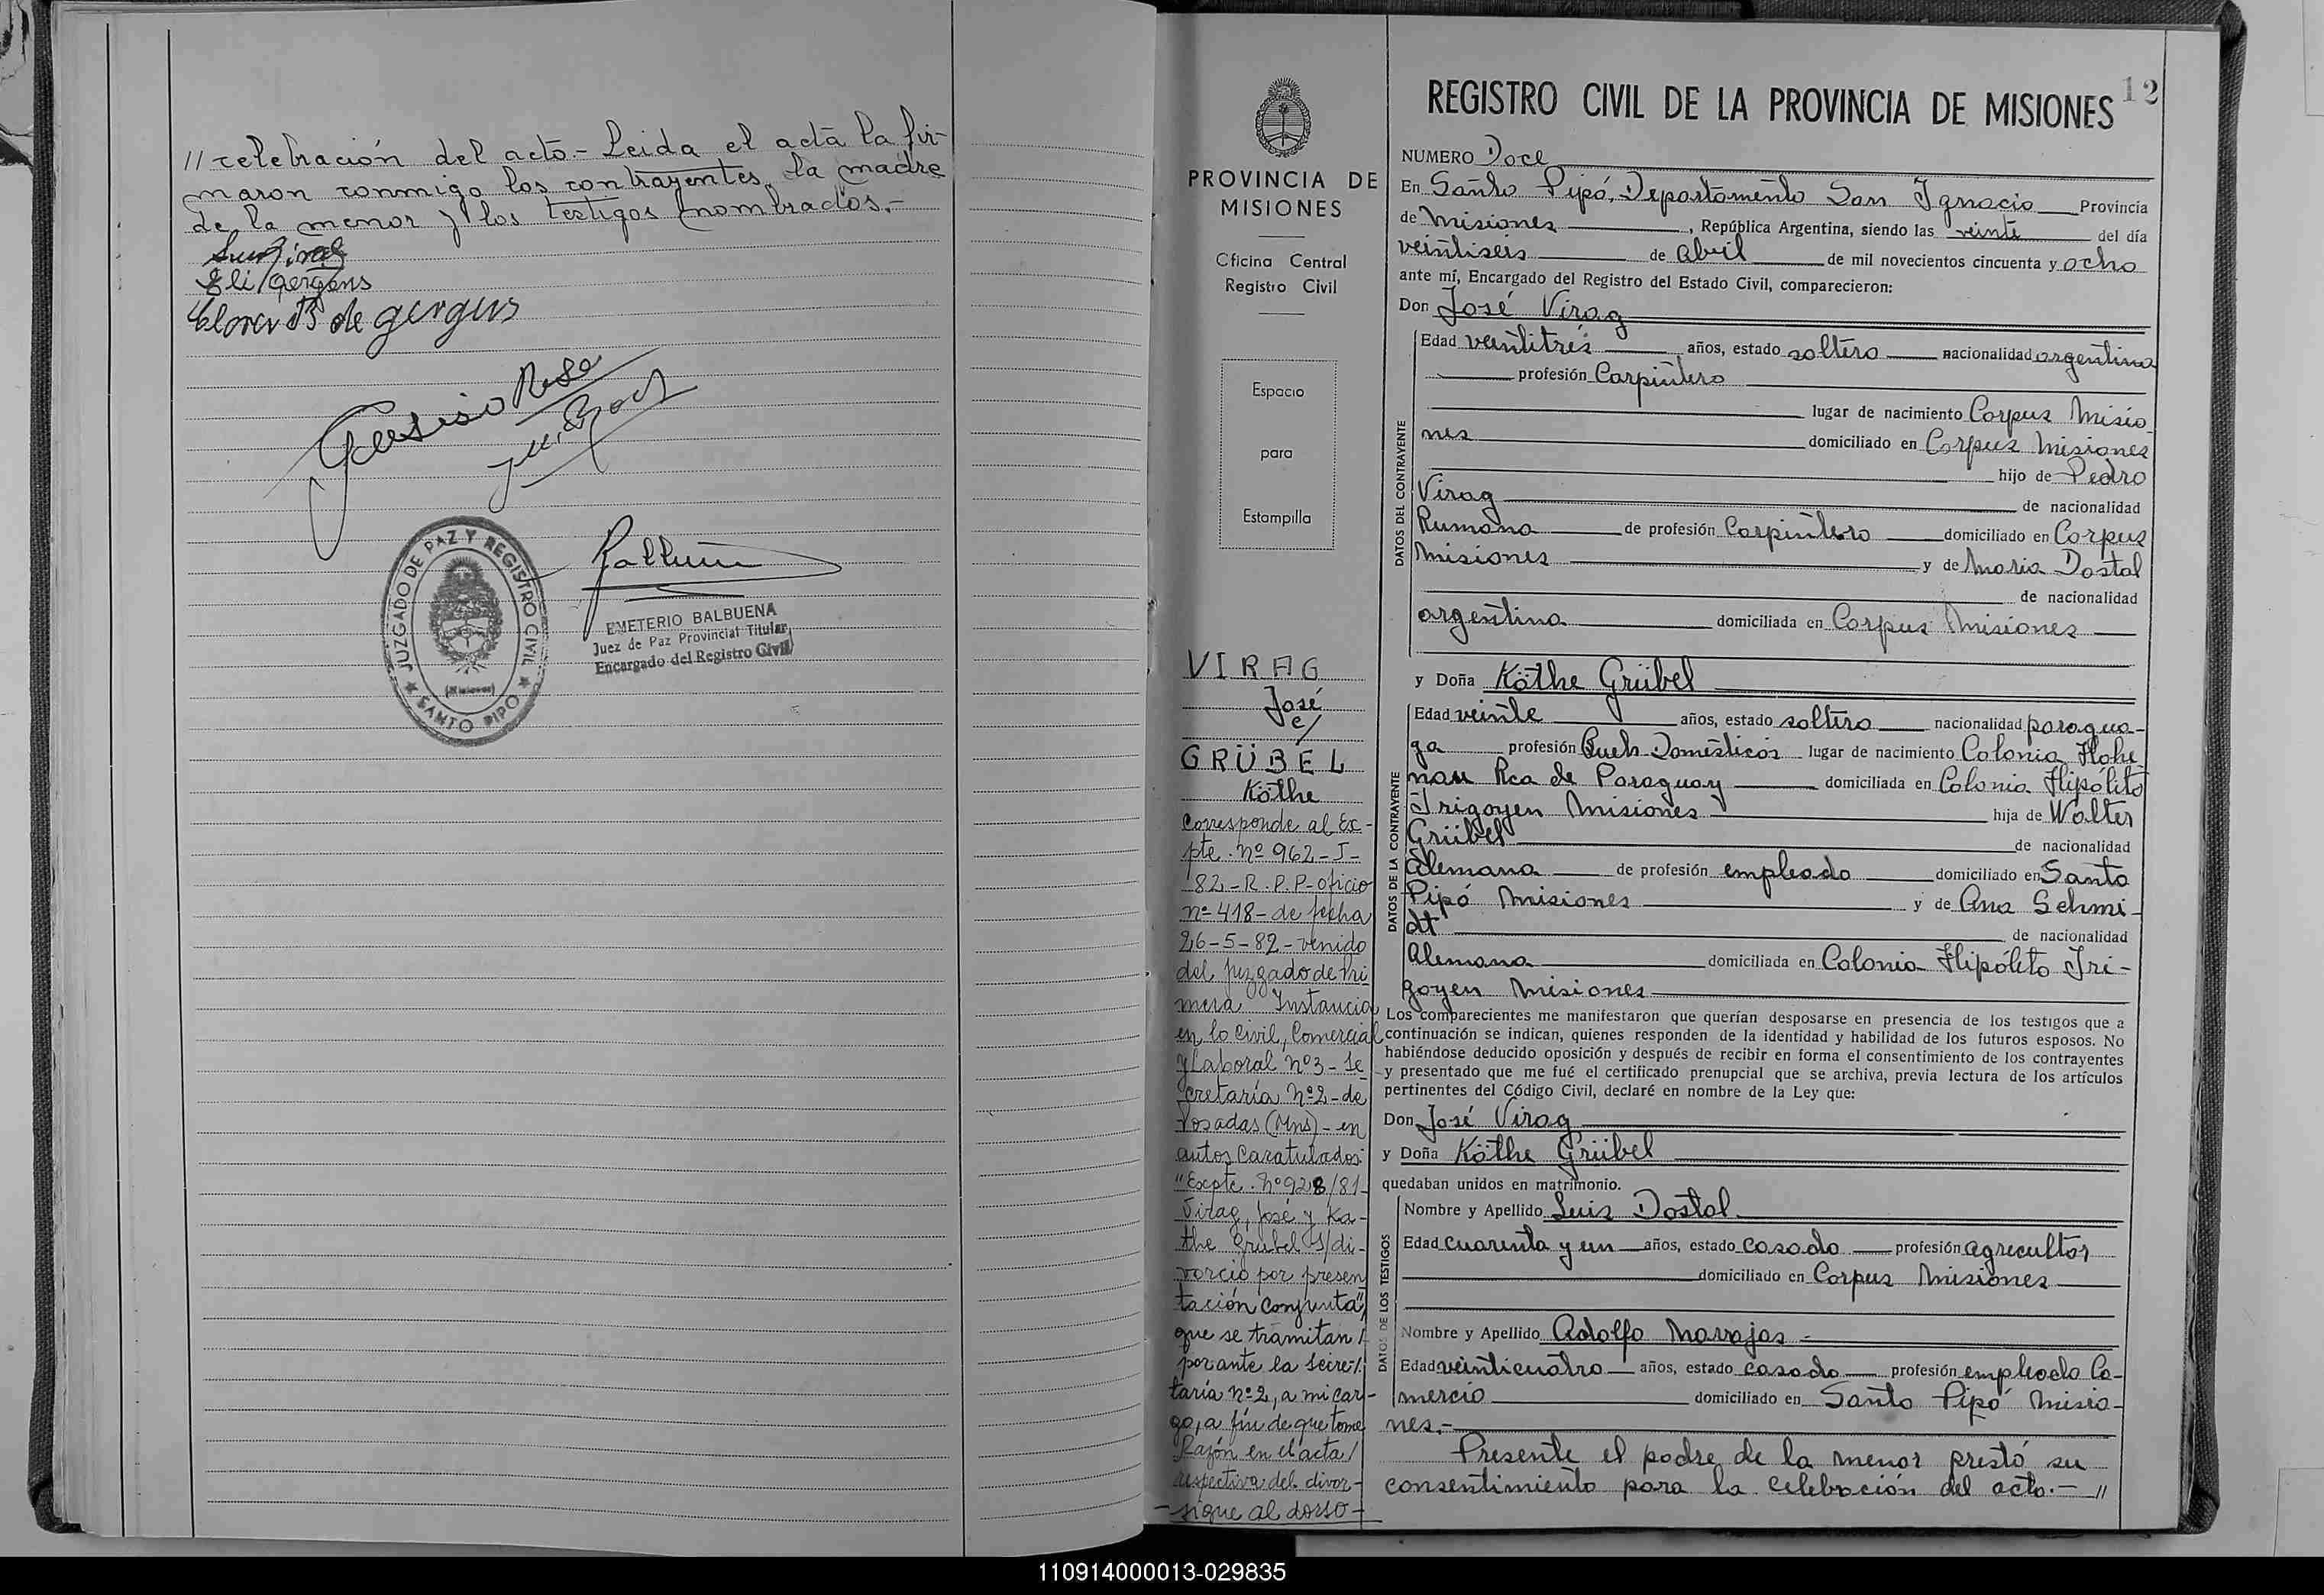 // celebración del acto.- Leida el acta la fir-
maron conmigo los contrayentes, la madre
de la menor y los testigos nombrados.-
Eli Gergens
de gergens
JUZGADO DE PAZ Y REGISTRO CIVIL
(Misiones)
★ SANTO PIPO ★
EMETERIO BALBUENA
Juez de Paz Provincial Titular
Encargado del Registro Civil
12
REGISTRO CIVIL DE LA PROVINCIA DE MISIONES
PROVINCIA DE
MISIONES
Oficina Central
Registro Civil
Espacio
para
Estampilla
VIRAG
José
c/
GRÜBEL
Köthe
Corresponde al Ex-
pte. nº 962-J-
82-R.P.P-oficio
nº 418-de fecha
26-5-82-venido
del juzgado de Pri
mera Instancia
en lo Civil, Comercial
y Laboral nº3-Se
cretaría nº2-de
Posadas (Mns)-en
autos Caratulados:
"Expte. nº 928/81-
Virag, José y Ka-
the Grubel S/di-
vorcio por presen
tación conjunta",
que se tramitan /
por ante la Secre-/
taría nº2, a mi car-
go, a fin de que tome
Razón en el acta /
respectiva del divor-
-sigue al dorso-
NUMERO Doce
En Santo Pipó, Departamento San Ignacio Provincia
de Misiones, República Argentina, siendo las veinte del día
veintiseis de abril de mil novecientos cincuenta y ocho
ante mí, Encargado del Registro del Estado Civil, comparecieron:
Don José Virag
DATOS DEL CONTRAYENTE
Edad veintitrés años, estado soltero nacionalidad argentina
profesión Carpintero
lugar de nacimiento Corpus Misio
nes domiciliado en Corpus Misiones
hijo de Pedro
Virag de nacionalidad
Rumana de profesión Carpintero domiciliado en Corpus
Misiones y de Maria Dostal
de nacionalidad
argentina domiciliada en Corpus Misiones
y Doña Köthe Grübel
DATOS DE LA CONTRAYENTE
Edad veinte años, estado soltera nacionalidad paragua-
ya profesión Queh. Domésticos lugar de nacimiento Colonia Hohe
nau Rca de Paraguay domiciliada en Colonia Hipólito
Irigoyen Misiones hija de Walter
Grübel de nacionalidad
Alemana de profesión empleado domiciliado en Santo
Pipó Misiones y de Ana Schmi-
dt de nacionalidad
Alemana domiciliada en Colonia Hipólito Iri-
goyen Misiones
Los comparecientes me manifestaron que querían desposarse en presencia de los testigos que a
continuación se indican, quienes responden de la identidad y habilidad de los futuros esposos. No
habiéndose deducido oposición y después de recibir en forma el consentimiento de los contrayentes
y presentado que me fué el certificado prenupcial que se archiva, previa lectura de los artículos
pertinentes del Código Civil, declaré en nombre de la Ley que:
Don José Virag
y Doña Köthe Grübel
quedaban unidos en matrimonio.
DATOS DE LOS TESTIGOS
Nombre y Apellido Luis Dostal
Edad cuarenta y un años, estado casado profesión agricultor
domiciliado en Corpus Misiones
Nombre y Apellido Adolfo Navajas -
Edad veinticuatro años, estado casado profesión empleado Co-
mercio domiciliado en Santo Pipó Misio-
nes.-
Presente el padre de la menor prestó su
consentimiento para la celebración del acto.- //
110914000013-029835